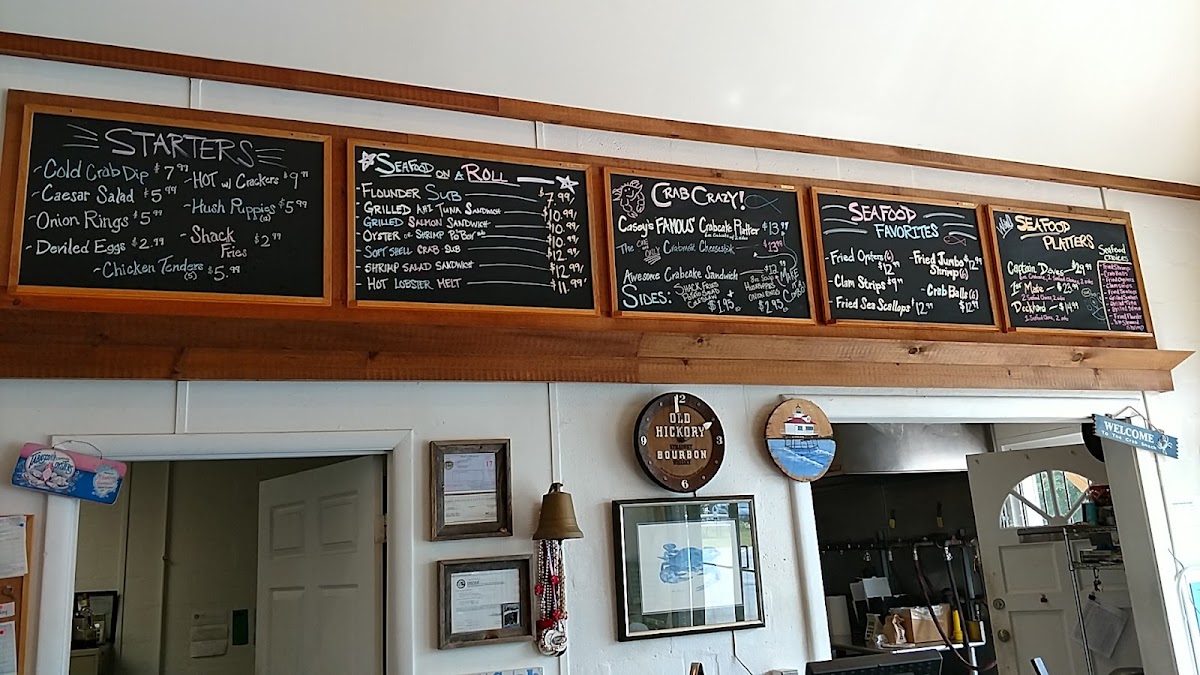 STARTERS
~Cold Crab Dip $7.99
~HOT w/ Crackers $9.99
~Caesar Salad $5.99
~Hush Puppies $5.99
(6)
~Onion Rings $5.99
~Shack Fries $2.99
~Deviled Eggs $2.99
~Chicken Tenders $5.99
(5)
SEAFOOD ON A ROLL
- FLOUNDER SUB $7.99/
- GRILLED AHI TUNA SANDWICH $10.99/
- GRILLED SALMON SANDWICH $10.99
- OYSTER OR SHRIMP PO'BOY $10.99
- SOFT SHELL CRAB SUB $12.99
- SHRIMP SALAD SANDWICH $12.99/
- HOT LOBSTER MELT $11.99
CRAB CRAZY!
Casey's FAMOUS Crabcake Platter $13.99
The ONE and ONLY Crabmeat Cheesesteak $13.99
Awesome Crabcake Sandwich $12.99
MAKE IT A COMBO
SIDES:
SHACK FRIES
POTATO SALAD
COLESLAW
$1.95
HUSHPUPPIES
ONION RINGS
$2.95
SEAFOOD
FAVORITES
- Fried Oysters (6) $12.99
- Fried Jumbo Shrimp (6) $12.99
- Clam Strips $9.99
- Crab Balls (6) $12.99
- Fried Sea Scallops $12.99
SEAFOOD
PLATTERS
Captain Daves - $29.99
1st Mate - $23.99
Deckhand - $14.99
Seafood Choices
OLD
HICKORY
STRAIGHT
BOURBON
WHISKEY
12
3
6
9
WELCOME
To The Crab Shack
17